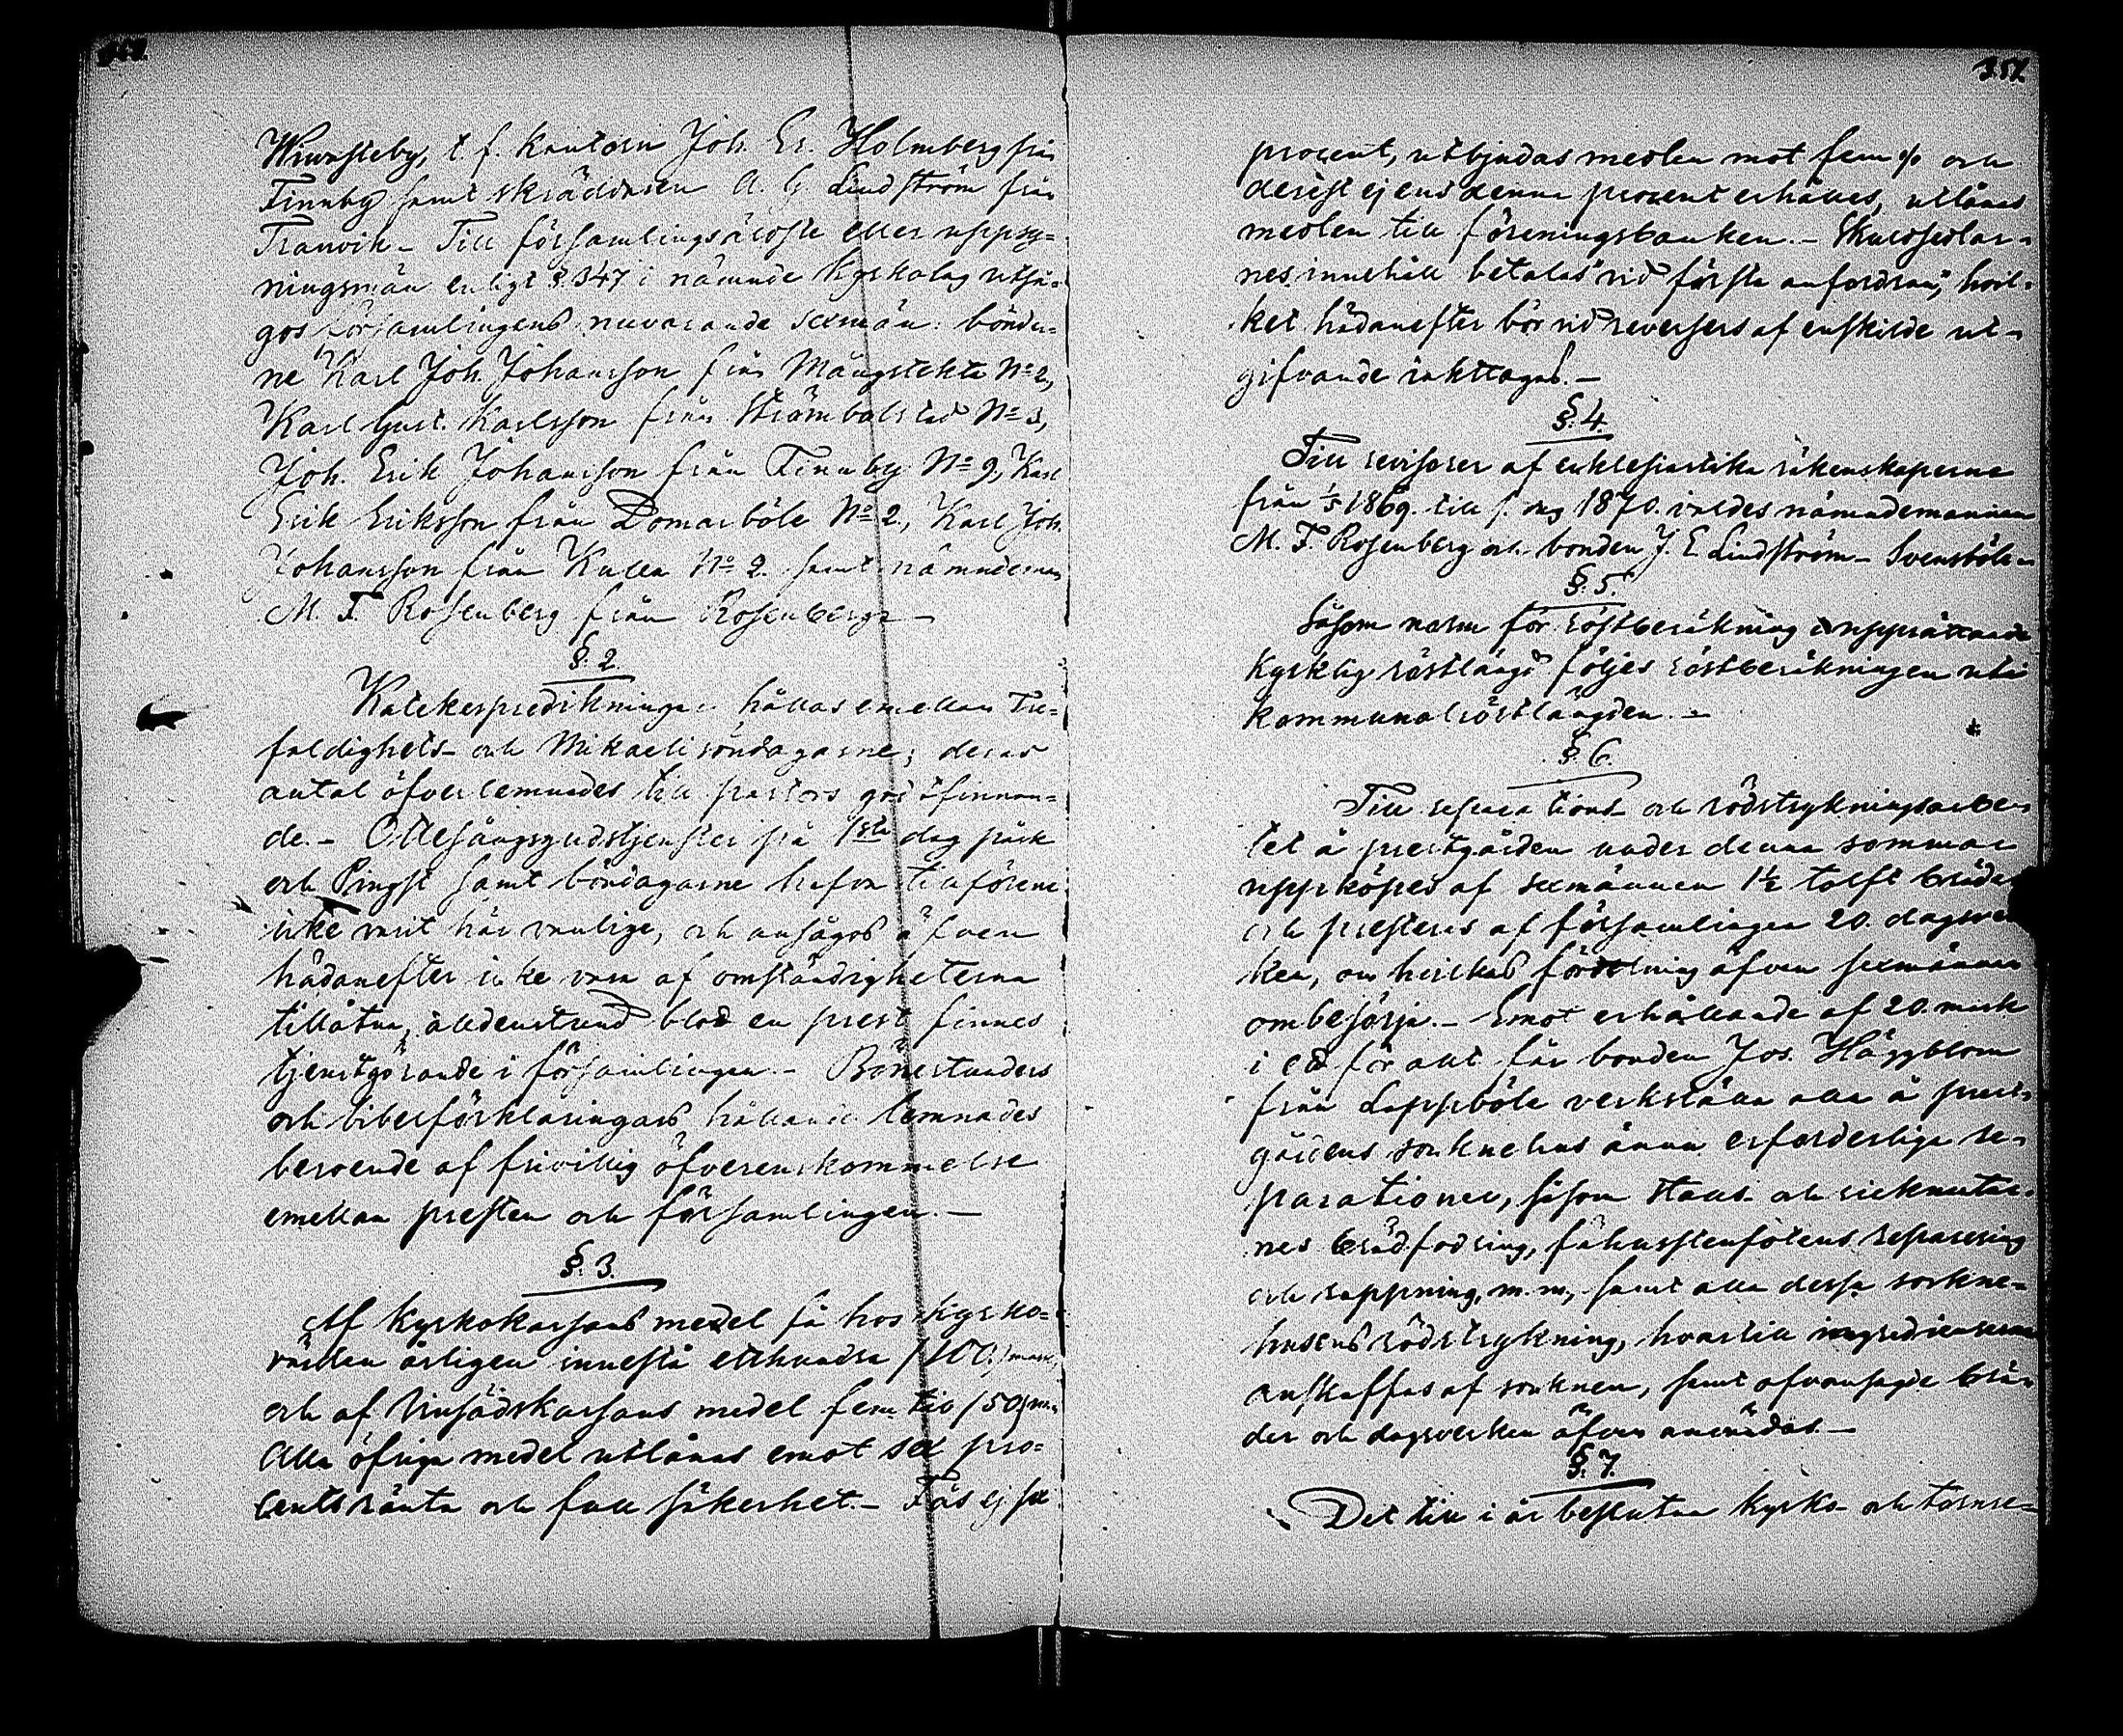 Wivasteby, t. f. kantorn Joh. Er. Holmberg från
Finnby samt skräddaren A. G. Lindström från
Tranvik – Till församlingsäldste eller uppsy-
ningsmän enligt §. 347 i nämnde kyrkolag utså-
gos församlingens nuvarande sexmän: bönder-
ne Karl Joh. Johansson från Mångstekta No 2,
Karl Gust. Karlsson från Strömbolstad No 3,
Joh. Erik Johansson från Finnby No 9, Karl
Erik Eriksson från Domarböle No 2, Karl Joh.
Johansson från Kulla No 2. samt nämndeman
M. F. Rosenberg från Rosenbergs –
§. 2.
Katekespredikningar hållas emellan Tre-
faldighets- och Mikaeli söndagarne; deras
antal öfverlemnades till pastors godtfinnan-
de. – Ottesångsgudstjenster på 1sta dag påsk
och Pingst samt böndagarne hafva tillförene
icke varit här vanliga, och ansågos äfven
hädanefter icke vara af omständigheterna
tillåtna, alldenstund blod en prest finnes
tjenstgörande i församlingen. – Bönestunders
och bibelförklaringars hållande lemnades
beroende af frivillig öfverenskommelse
emellan presten och församlingen. –
§. 3.
Af Kyrkokassans medel få hos kyrko-
värden årligen innestå etthundra /100/ mark,
och af Unsädskassans medel femtio /50/ m.
Alla öfriga medel utlånas emot sex pro-
cents ränta och full säkerhet. – Fås ej sex
351.
procent, utbjudas medlen mot fem % och
derest ej ens denna procent erhålles, utlånas
medlen till föreningsbanken. – Skuldsedlar-
nes innehåll betalas "vid första anfordran", hvil-
ket hädanefter bör vid reversers af enskilde ut-
gifvande iakttagas. –
§. 4.
Till revisorer af ecklesiastika räkenskaperne
från 1/5 1869. till s. dag 1870. valdes nämndemannen
M. F. Rosenberg och bonden J. E Lindström – Svensböle –
§. 5.
Såsom norm för röstberäkning i upprättande
kyrklig röstlängd följes röstberäkningen uti
kommunalröstlängden. –
§. 6.
Till reparations- och rödstrykningsarbe-
tet å prestgården under denna sommar
uppköpes af sexmännen 1½ tolft bräder
och presteras af församlingen 20. dagsver-
ken, om hvilkas fördelning äfven sexmännen
ombesörja. – Emot erhållande af 20. mark
i ett för allt får bonden Jos. Häggblom
från Lappböle verkställa alla å prest-
gårdens socknehus ännu erforderliga re-
parationer, såsom stall- och
nes brädfodring, fähusstenfotens reparering
och rappning, m. m., samt alla dessa sockne-
husens rödstrykning, hvartill ingredienserna
anskaffas af socknen, samt ofvansagde brä-
der och dagsverken äfven användas. –
§. 7.
Det till i år beslutna kyrko- och tornre-